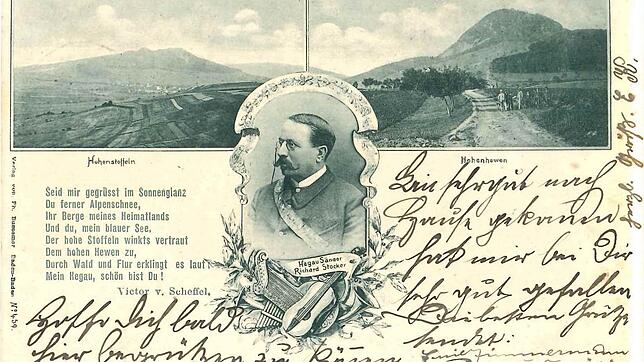 Hohenstoffeln
Hohenhewen
Seid mir gegrüsst im Sonnenglanz
Du ferner Alpenschnee,
Ihr Berge meines Heimatlands
Und du, mein blauer See.
Der hohe Stoffeln winkts vertraut
Dem hohen Hewen zu,
Durch Wald und Flur erklingt es laut:
Mein Hegau, schön bist Du!
Victor v. Scheffel.
Hegau Sänger
Richard Stocker
Bin sehr gut nach
Hause gekommen
hat mir bei Dir
sehr gut gefallen
Die besten Grüße
sendet:
Hoffe Dich bald
hier begrüßen zu können
Verlag von Fr.
Baden-Baden No. 459.